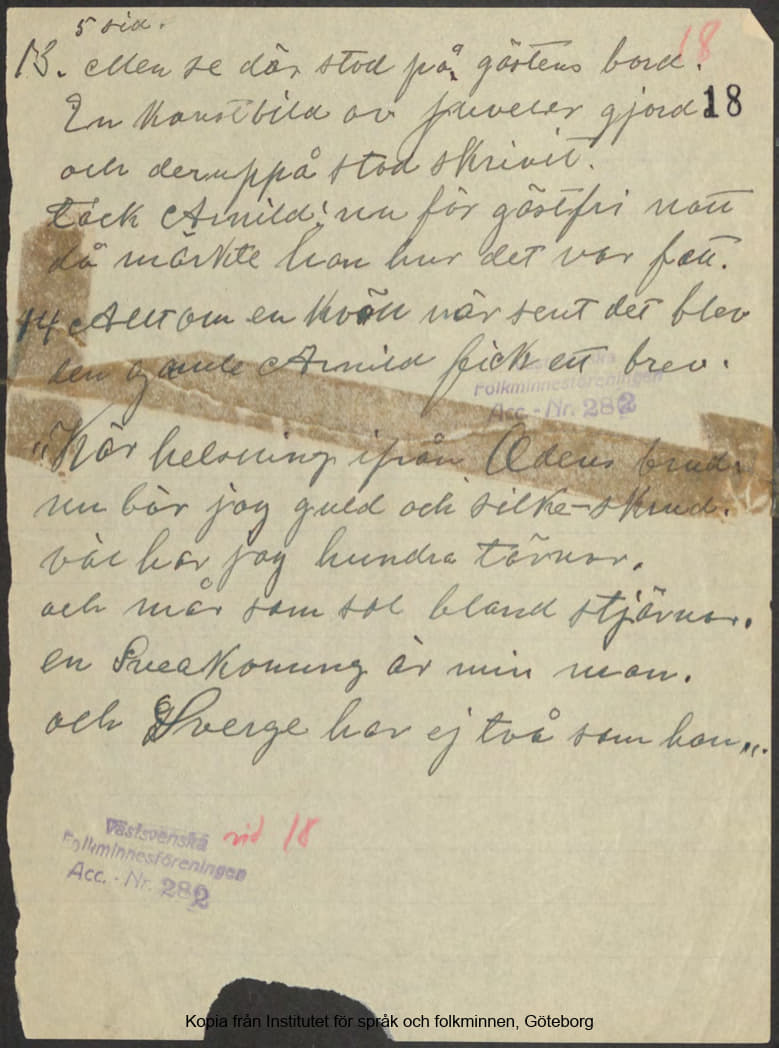 5 sid.
18
13. Men se där stod på gästens bord.
En Konstbild av juveler gjord.
18
och deruppå stod skrivit.
täck Arnild: nu för gästfri natt
då märkte han hur det var fatt.
14 Allt om en kväll när sent det blev
den gamle Arnild fick ett brev.
Folkminnesföreningen
Acc. - Nr. 282
"Kär helsning ifrån Ödens brud.
nu bär jag guld och silke-skrud.
väl har jag hundra tärnor.
och mår som sol bland stjärnor.
en Sveakonung är min man.
och Sverge har ej två som han".
Västsvenska
sid 18
Folkminnesföreningen
Acc. - Nr. 282
Kopia från Institutet för språk och folkminnen, Göteborg